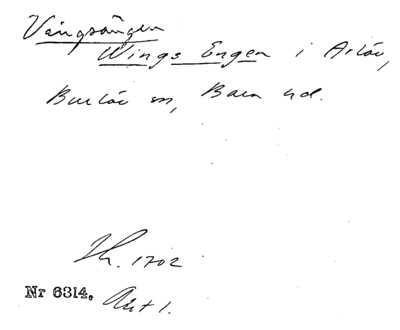 Vångsången
Wings Engen i Arlöv,
Burlöv sn, Bara hd.
Lh. 1702
Nr 6314. Akt 1.